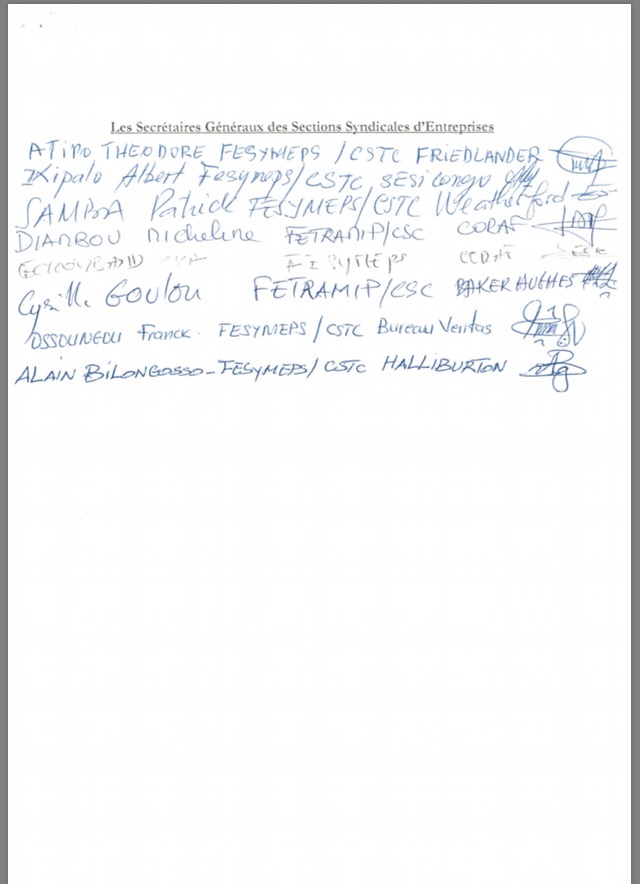 Les Secrétaires Généraux des Sections Syndicales d'Entreprises
ATIPO THEODORE FESYMEPS / CSTC FRIEDLANDER
Kipalo Albert Fesymeps/CSTC SESI Congo
SAMBA Patrick FESYMEPS/CSTC Weatherford
DIAMBOU Micheline FETRAMIP/CSC CORAF
FESYMEPS CORAF
Cyrille GOULOU FETRAMIP/CSC BAKER HUGHES
Franck. FESYMEPS / CSTC Bureau Veritas
ALAIN BILONGOSSO - FESYMEPS/ CSTC HALLIBURTON